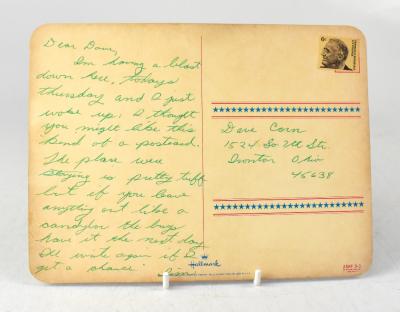 Dear Dave,
I'm having a blast
down here. Todays
thursday and I just
woke up. I thought
you might like this
kind of a postcard.
The place were
staying is pretty tuff
but if you leave
anything out like a
candybar the bugs
have it the next day
I'll write again if I
get a chance.
6c
Dave Corn
1524 So. 7th Str.
Ironton Ohio
45638
Hallmark